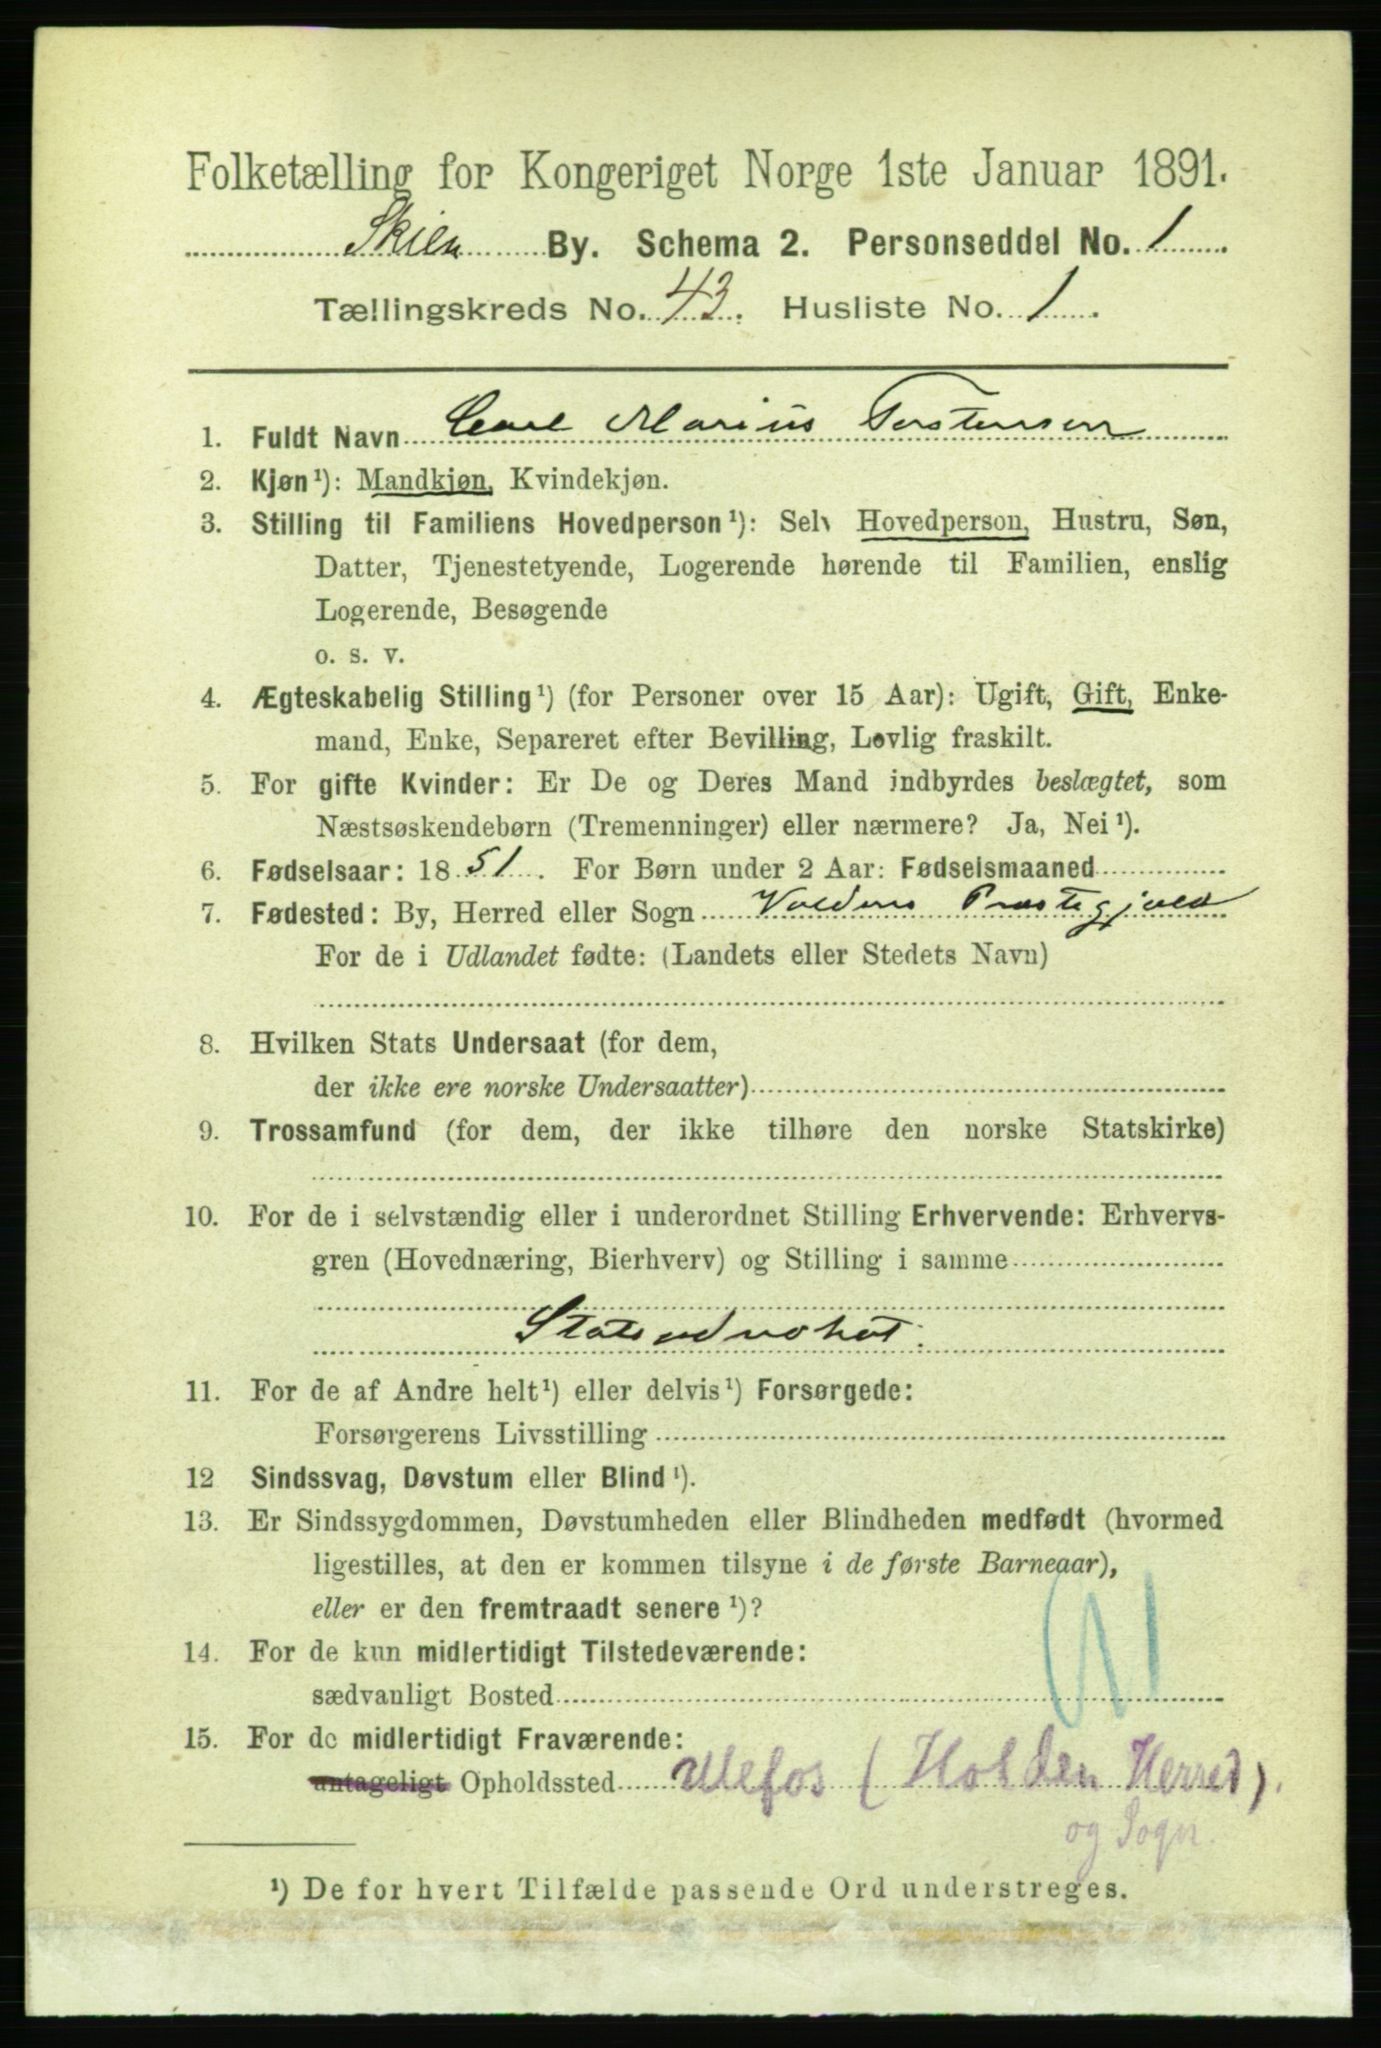 Folketælling for Kongeriget Norge 1ste Januar 1891.
Skien By. Schema 2. Personseddel No. 1
Tællingskreds No. 43. Husliste No. 1.
1. Fuldt Navn Carl Marius Torstensen
2. Kjøn¹): Mandkjøn, Kvindekjøn.
3. Stilling til Familiens Hovedperson¹): Selv Hovedperson, Hustru, Søn,
Datter, Tjenestetyende, Logerende hørende til Familien, enslig
Logerende, Besøgende
o. s. v.
4. Ægteskabelig Stilling¹) (for Personer over 15 Aar): Ugift, Gift, Enke-
mand, Enke, Separeret efter Bevilling, Lovlig fraskilt.
5. For gifte Kvinder: Er De og Deres Mand indbyrdes beslægtet, som
Næstsøskendebørn (Tremenninger) eller nærmere? Ja, Nei¹).
6. Fødselsaar: 1851. For Børn under 2 Aar: Fødselsmaaned
7. Fødested: By, Herred eller Sogn Voldens Præstegjæld
For de i Udlandet fødte: (Landets eller Stedets Navn)
8. Hvilken Stats Undersaat (for dem,
der ikke ere norske Undersaatter)
9. Trossamfund (for dem, der ikke tilhøre den norske Statskirke)
10. For de i selvstændig eller i underordnet Stilling Erhvervende: Erhvervs-
gren (Hovednæring, Bierhverv) og Stilling i samme
Statsadvokat.
11. For de af Andre helt¹) eller delvis¹) Forsørgede:
Forsørgerens Livsstilling
12 Sindssvag, Døvstum eller Blind¹).
13. Er Sindssygdommen, Døvstumheden eller Blindheden medfødt (hvormed
ligestilles, at den er kommen tilsyne i de første Barneaar),
eller er den fremtraadt senere¹)?
14. For de kun midlertidigt Tilstedeværende:
sædvanligt Bosted
15. For de midlertidigt Fraværende:
antageligt Opholdssted Ulefos (Holden Herred).
og Sogn.
¹) De for hvert Tilfælde passende Ord understreges.